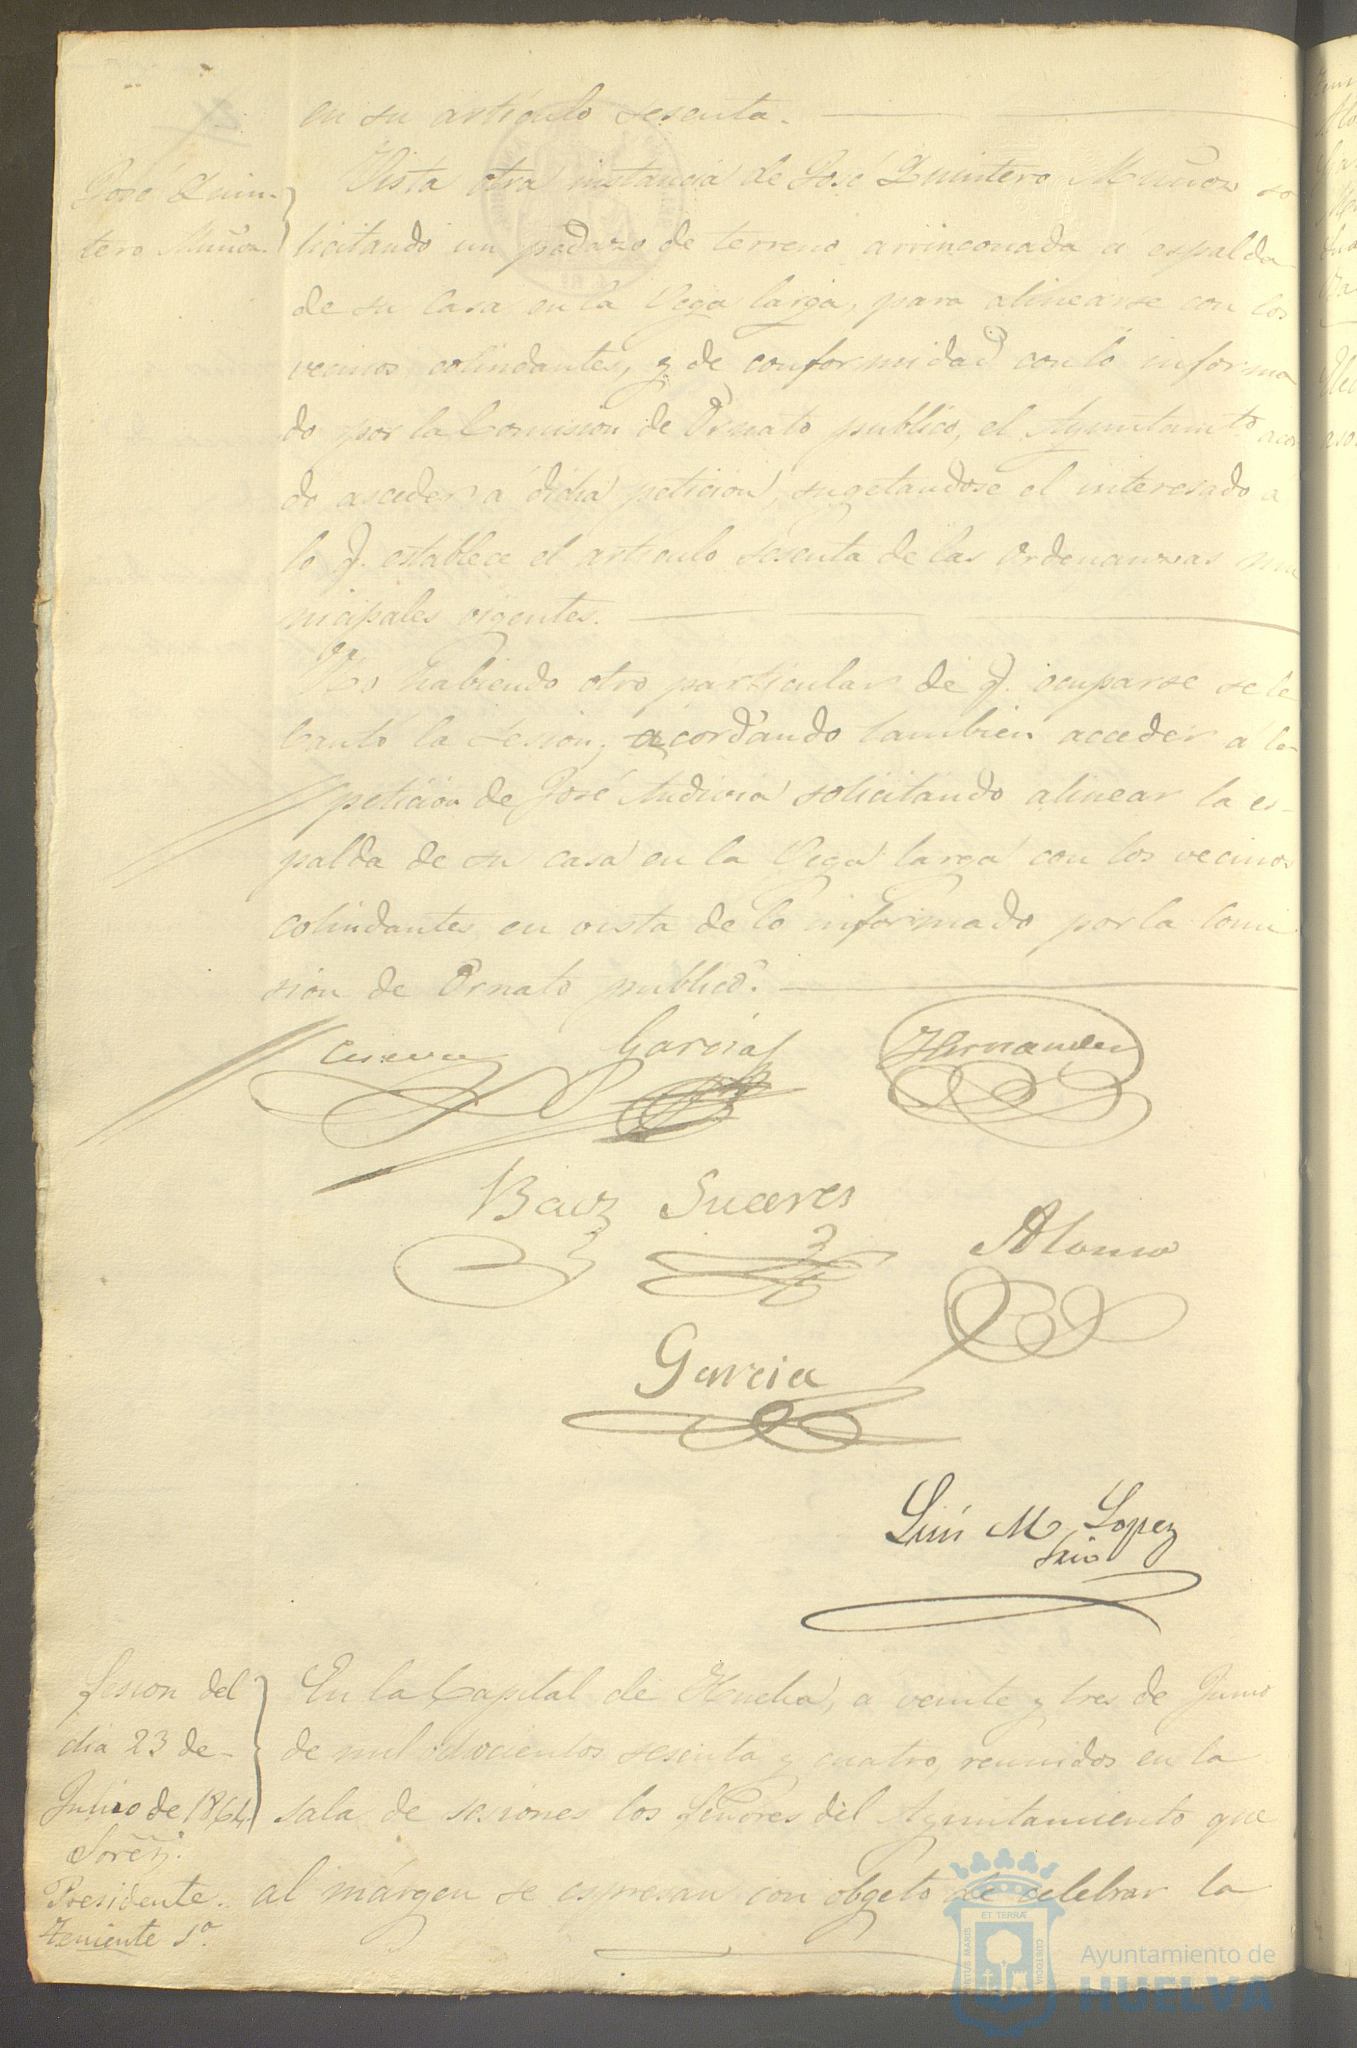 en su artículo sesenta.
José Quin-
tero Muñoz.
Vista otra instancia de José Quintero Muñoz so
licitando un pedazo de terreno arrinconada á espalda
de su casa en la Vega larga, para alinearse con los
vecinos colindantes, y de conformidad con lo informa
do por la Comision de Ornato publico, el Ayuntamto acor
do acceder á dicha peticion, sugetandose el interesado á
lo q. establece el artículo sesenta de las Ordenanzas mu
nicipales vigentes.
No habiendo otro particular de q. ocuparse se le
bantó la sesion, acordando tambien acceder a la
peticion de José Andivia solicitando alinear la es-
palda de su casa en la Vega larga con los vecinos
colindantes en vista de lo informado por la Comi
sión de Ornato publico.
Garcia
Hernandez
Baez Suceres
Alonso
Garcia
Luis M. Lopez
Srio
Sesion del
dia 23 de
Junio de 1864
Señores.
Presidente.
Teniente 1º.
En la Capital de Huelva, á veinte y tres de Junio
de mil ochocientos sesenta y cuatro, reunidos en la
sala de sesiones los Señores del Ayuntamiento que
al márgen se espresan con obgeto de celebrar la
ET TERRÆ
PORTUS MARIS
CUSTODIA
Ayuntamiento de
HUELVA